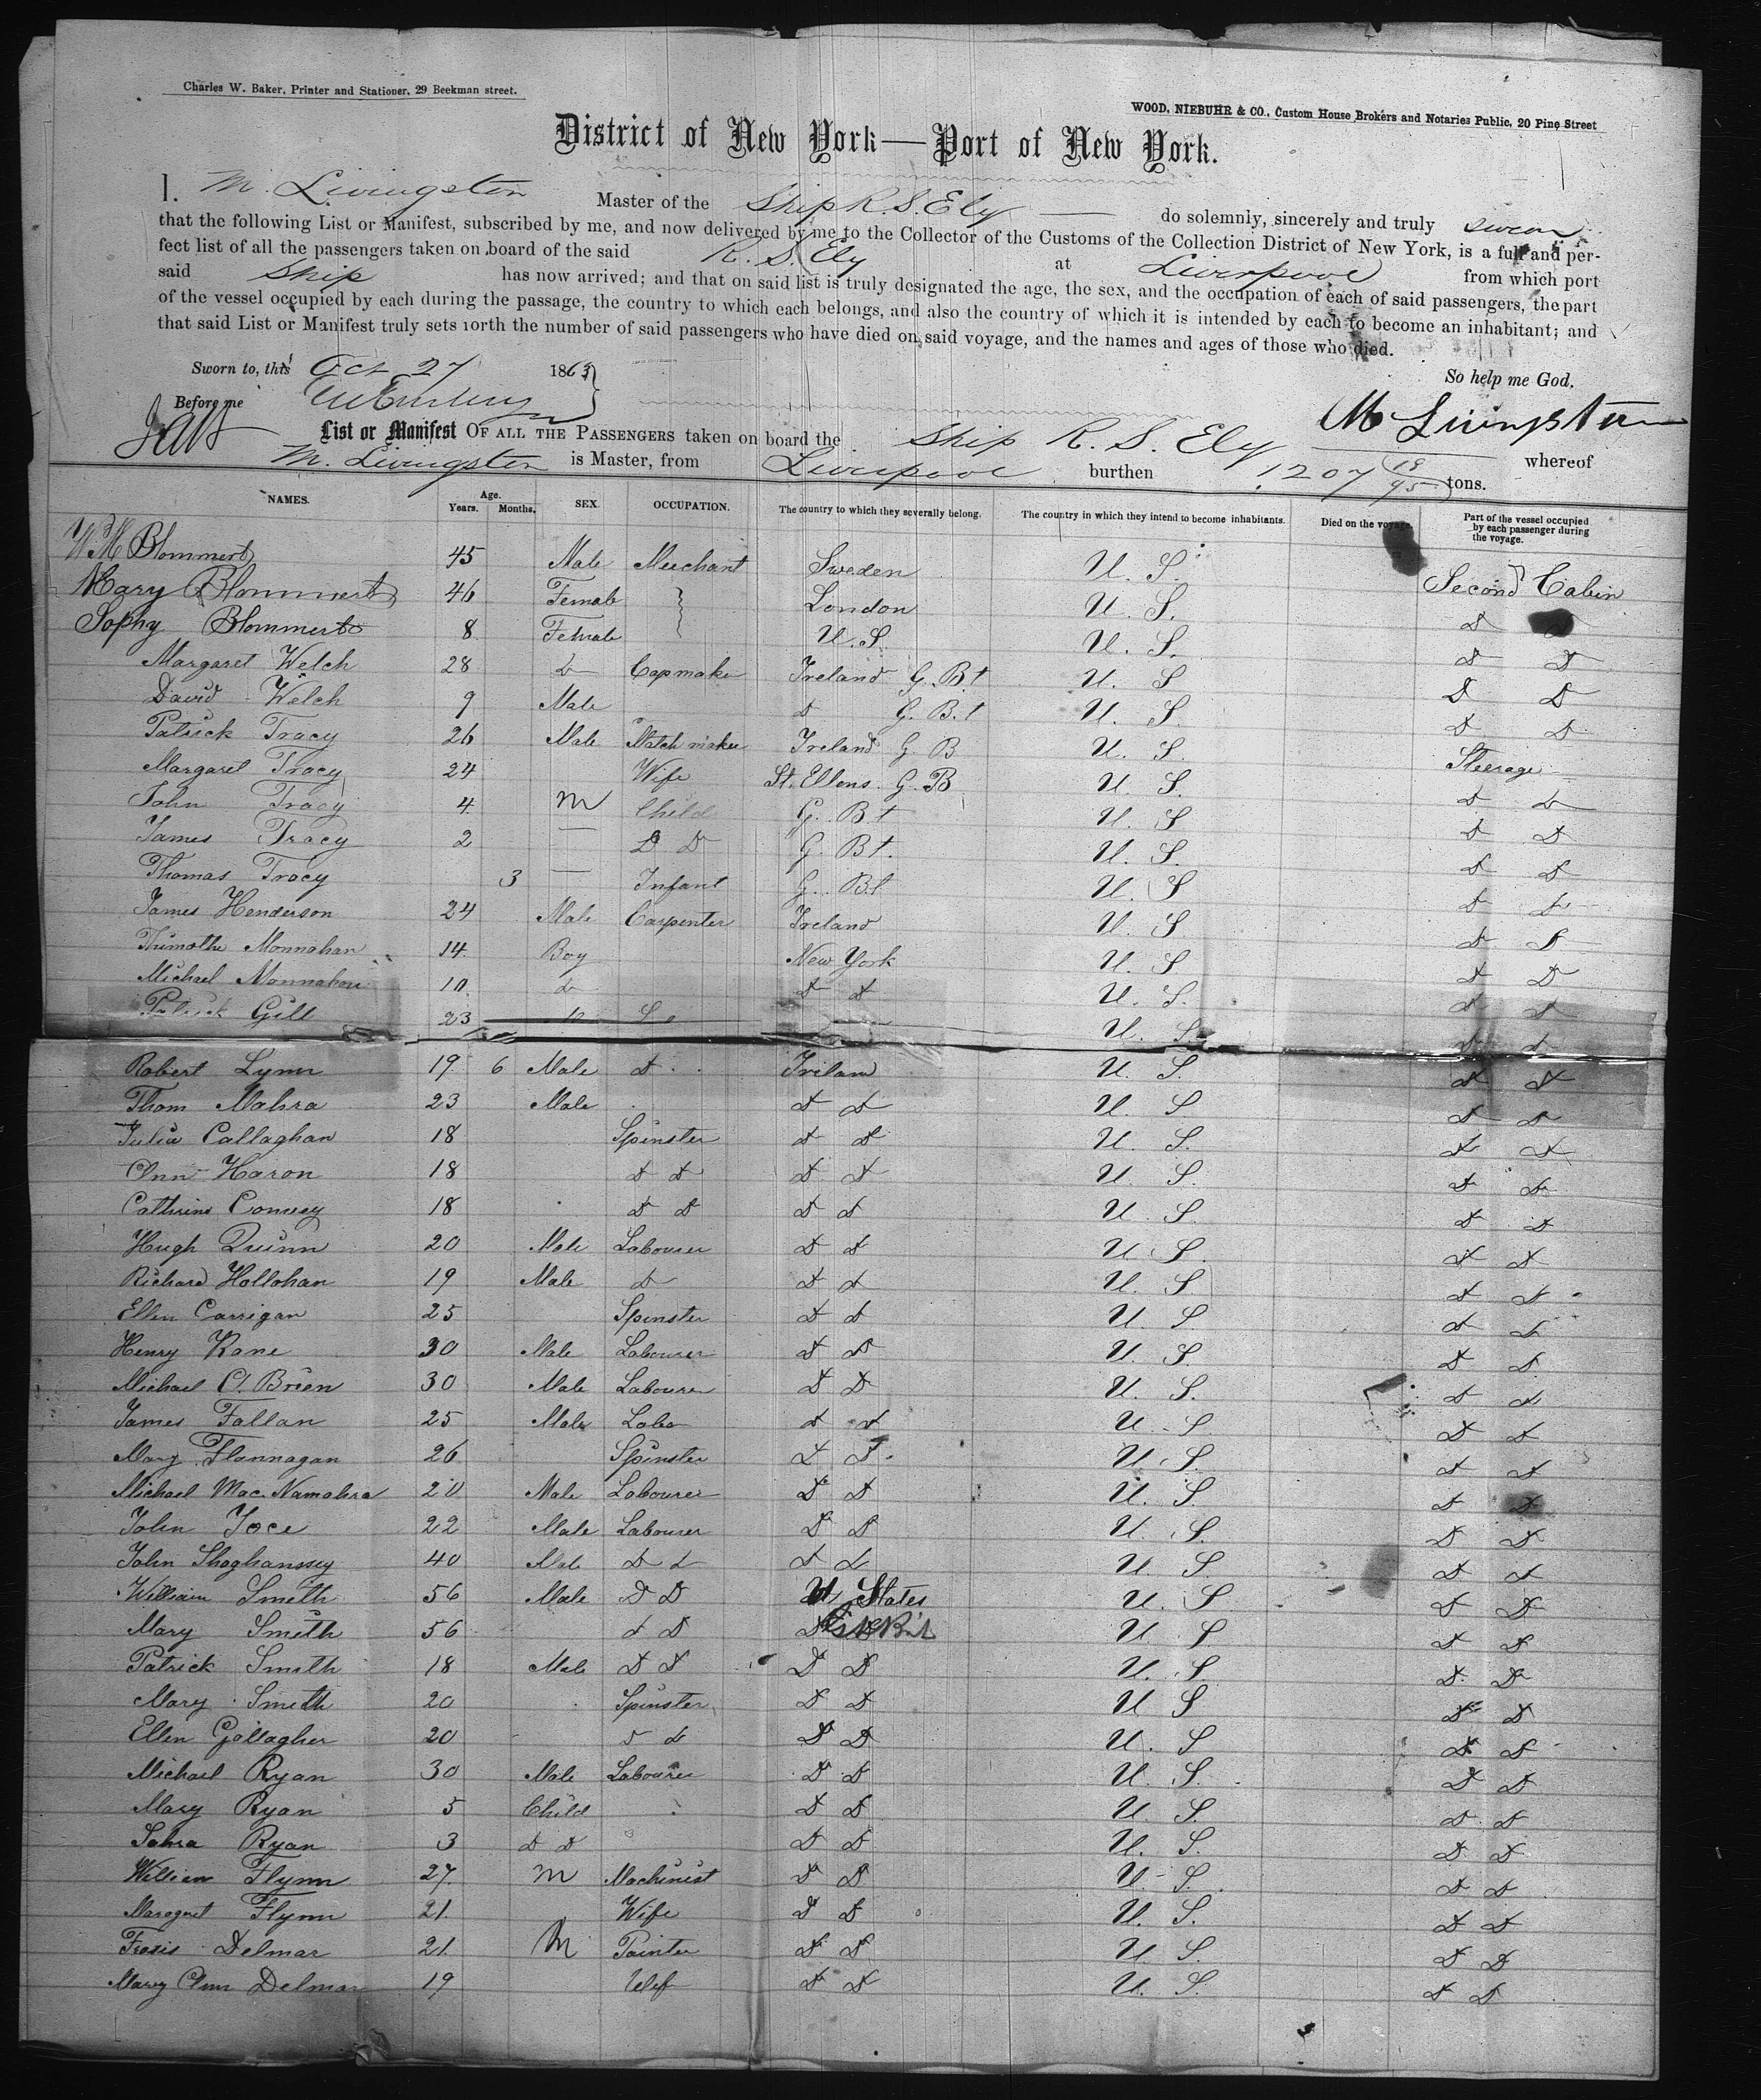 Charles W. Baker, Printer and Stationer, 29 Beekman street.
WOOD, NIEBUHR & CO., Custom House Brokers and Notaries Public, 20 Pine Street
District of New York—Port of New York.
I. M. Livingston Master of the Ship R. S. Ely — do solemnly, sincerely and truly swear
that the following List or Manifest, subscribed by me, and now delivered by me to the Collector of the Customs of the Collection District of New York, is a full and per-
fect list of all the passengers taken on board of the said R. S. Ely at Liverpool from which port
said Ship has now arrived; and that on said list is truly designated the age, the sex, and the occupation of each of said passengers, the part
of the vessel occupied by each during the passage, the country to which each belongs, and also the country of which it is intended by each to become an inhabitant; and
that said List or Manifest truly sets forth the number of said passengers who have died on said voyage, and the names and ages of those who died.
Sworn to, this Oct 27 1863 So help me God,
Before me M Livingston
List or Manifest OF ALL THE PASSENGERS taken on board the Ship R. S. Ely whereof
M. Livingston is Master, from Liverpool burthen 1207 18/95 tons.
NAMES. Age. Years. Months. SEX. OCCUPATION. The country to which they severally belong. The country in which they intend to become inhabitants. Died on the voyage. Part of the vessel occupied by each passenger during the voyage.
WM Blommert 45 Male Merchant Sweden U. S. Second Cabin
Mary Blommert 46 Female London U. S. D D
Sophy Blommert 8 Female U. S. U. S. D D
Margaret Welch 28 D Capmaker Ireland G. Bt U. S D D
David Welch 9 Male D G. B. t U. S. D D
Patrick Tracy 26 Male Match maker Ireland G B U. S. Steerage
Margaret Tracy 24 Wife St. Ellens. G. B U. S. D D
John Tracy 4 M Child G. Bt U. S D D
James Tracy 2 — D D G. Bt. U. S. D D
Thomas Tracy 3 — Infant G. Bt U. S D D
James Henderson 24 Male Carpenter Ireland U. S D D
Thimothe Monnahan 14 Boy New York U. S D D
Michael Monnahan 10 D D D U. S. D D
Patrick Gill 23 U. S. D D
Robert Lynn 19 6 Male D Irilan U. S. D D
Thom Mahra 23 Male D D U. S D D
Julia Callaghan 18 Spinster D D U. S. D D
Ann Haron 18 D D D D U. S. D D
Cathrine Conway 18 D D D D U. S D D
Hugh Quinn 20 Male Labourer D D U. S. D D
Richard Hollohan 19 Male D D D U. S D D
Ellen Carrigan 25 Spinster D D U. S D D
Henry Kane 30 Male Labourer D D U. S D D
Michael O. Brien 30 Male Labourer D D U. S. D D
James Fallan 25 Male Labo D D U. S. D D
Mary Flannagan 26 Spinster D D U. S. D D
Michael Mac. Namahra 20 Male Labourer D D U. S. D D
John Joce 22 Male Labourer D D U. S. D D
John Shoghanssey 40 Male D D D D U. S. D D
William Smith 56 Male D D U. States U. S D D
Mary Smith 56 D D U. S D D
Patrick Smith 18 Male D D D D U. S D D
Mary Smith 20 Spinster D D U S D D
Ellen Gallagher 20 D D D D U. S D D
Michael Ryan 30 Male Labourer D D U. S. D D
Mary Ryan 5 Child D D U. S. D D
Sahra Ryan 3 D D D D U. S. D D
William Flynn 27 M Machinist D D U. S. D D
Maragret Flynn 21 Wife D D U. S. D D
Delmar 21 M Painter D D U. S. D D
Mary Ann Delmar 19 Wif D D U. S. D D